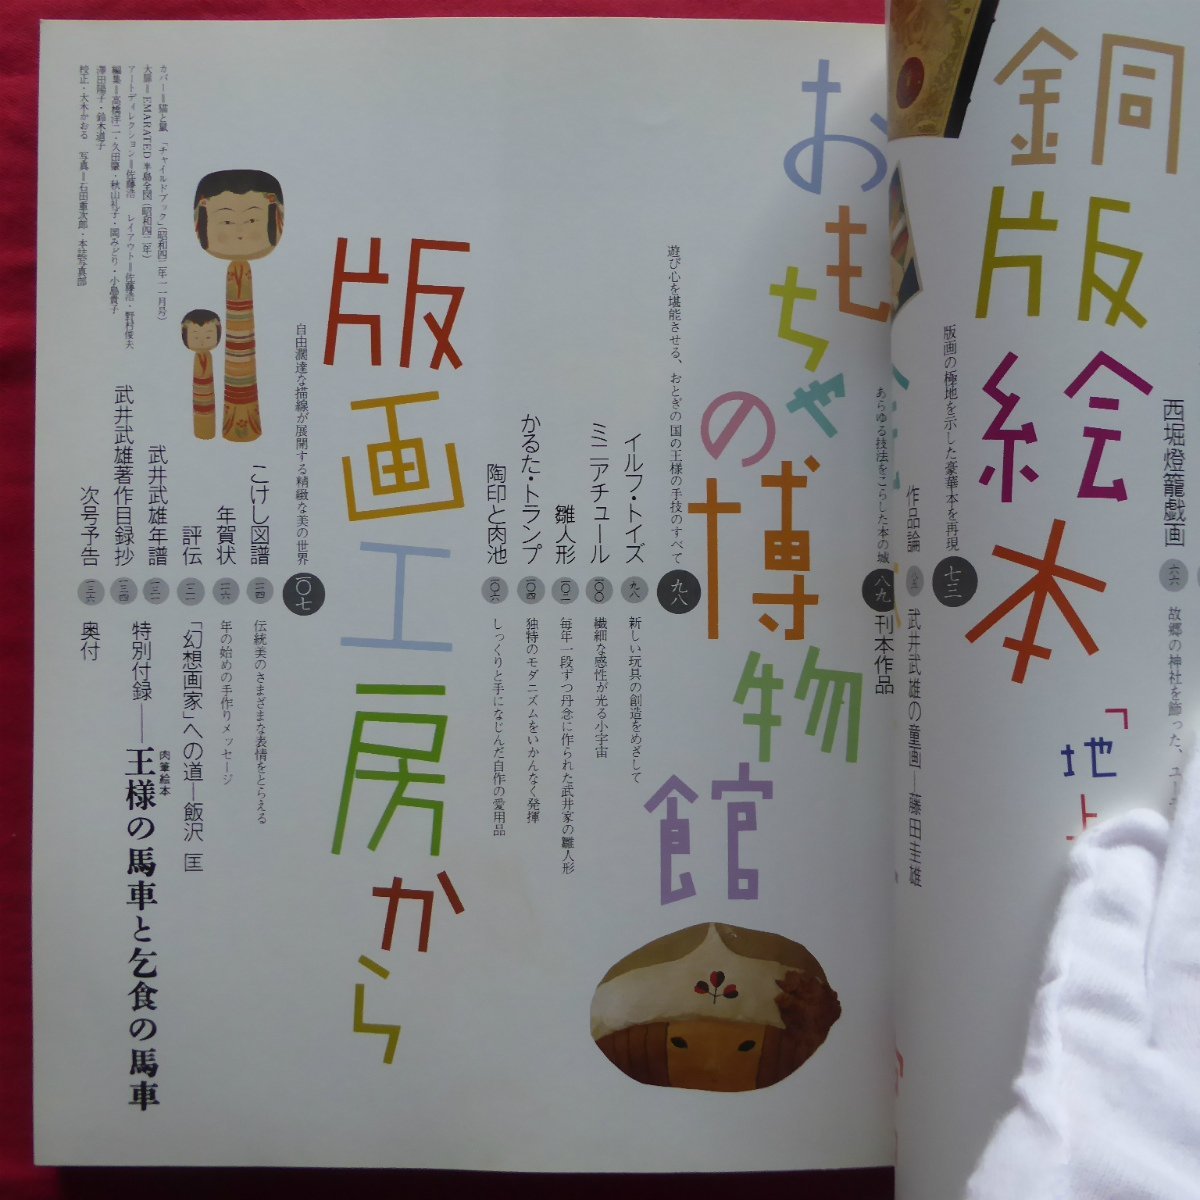 西堀燈籠戯画
六六
故郷の神社を飾った、ユー
銅版絵本
「地上
版画の極地を示した豪華本を再現
七三
作品論
武井武雄の童画―藤田圭雄
あらゆる技法をこらした本の城
八九
刊本作品
おもちゃの博物館
遊び心を堪能させる、おとぎの国の王様の手技のすべて
九八
イルフ・トイズ
九八
新しい玩具の創造をめざして
ミニアチュール
一〇〇
繊細な感性が光る小宇宙
雛人形
一〇二
毎年一段ずつ丹念に作られた武井家の雛人形
かるた・トランプ
一〇四
独特のモダニズムをいかんなく発揮
陶印と肉池
一〇六
しっくりと手になじんだ自作の愛用品
版画工房から
自由濶達な描線が展開する精緻な美の世界
一〇七
こけし図譜
一一四
伝統美のさまざまな表情をとらえる
年賀状
一一六
年の始めの手作りメッセージ
評伝
「幻想画家」への道―飯沢 匡
武井武雄年譜
武井武雄著作目録抄
一三四
特別付録――王様の馬車と乞食の馬車
肉筆絵本
次号予告
一三六
奥付
カバー＝猫と鼠 「チャイルドブック」（昭和四二年一一月号）
大扉＝EMARATED 半島全図（昭和四二年）
アートディレクション＝佐藤浩 レイアウト＝佐藤浩・野村俊夫
編集＝高橋洋二・久田肇・秋山礼子・岡みどり・小島貴子
澤田陽子・鈴木道子
校正・大木かおる 写真＝石田重次郎・本誌写真部